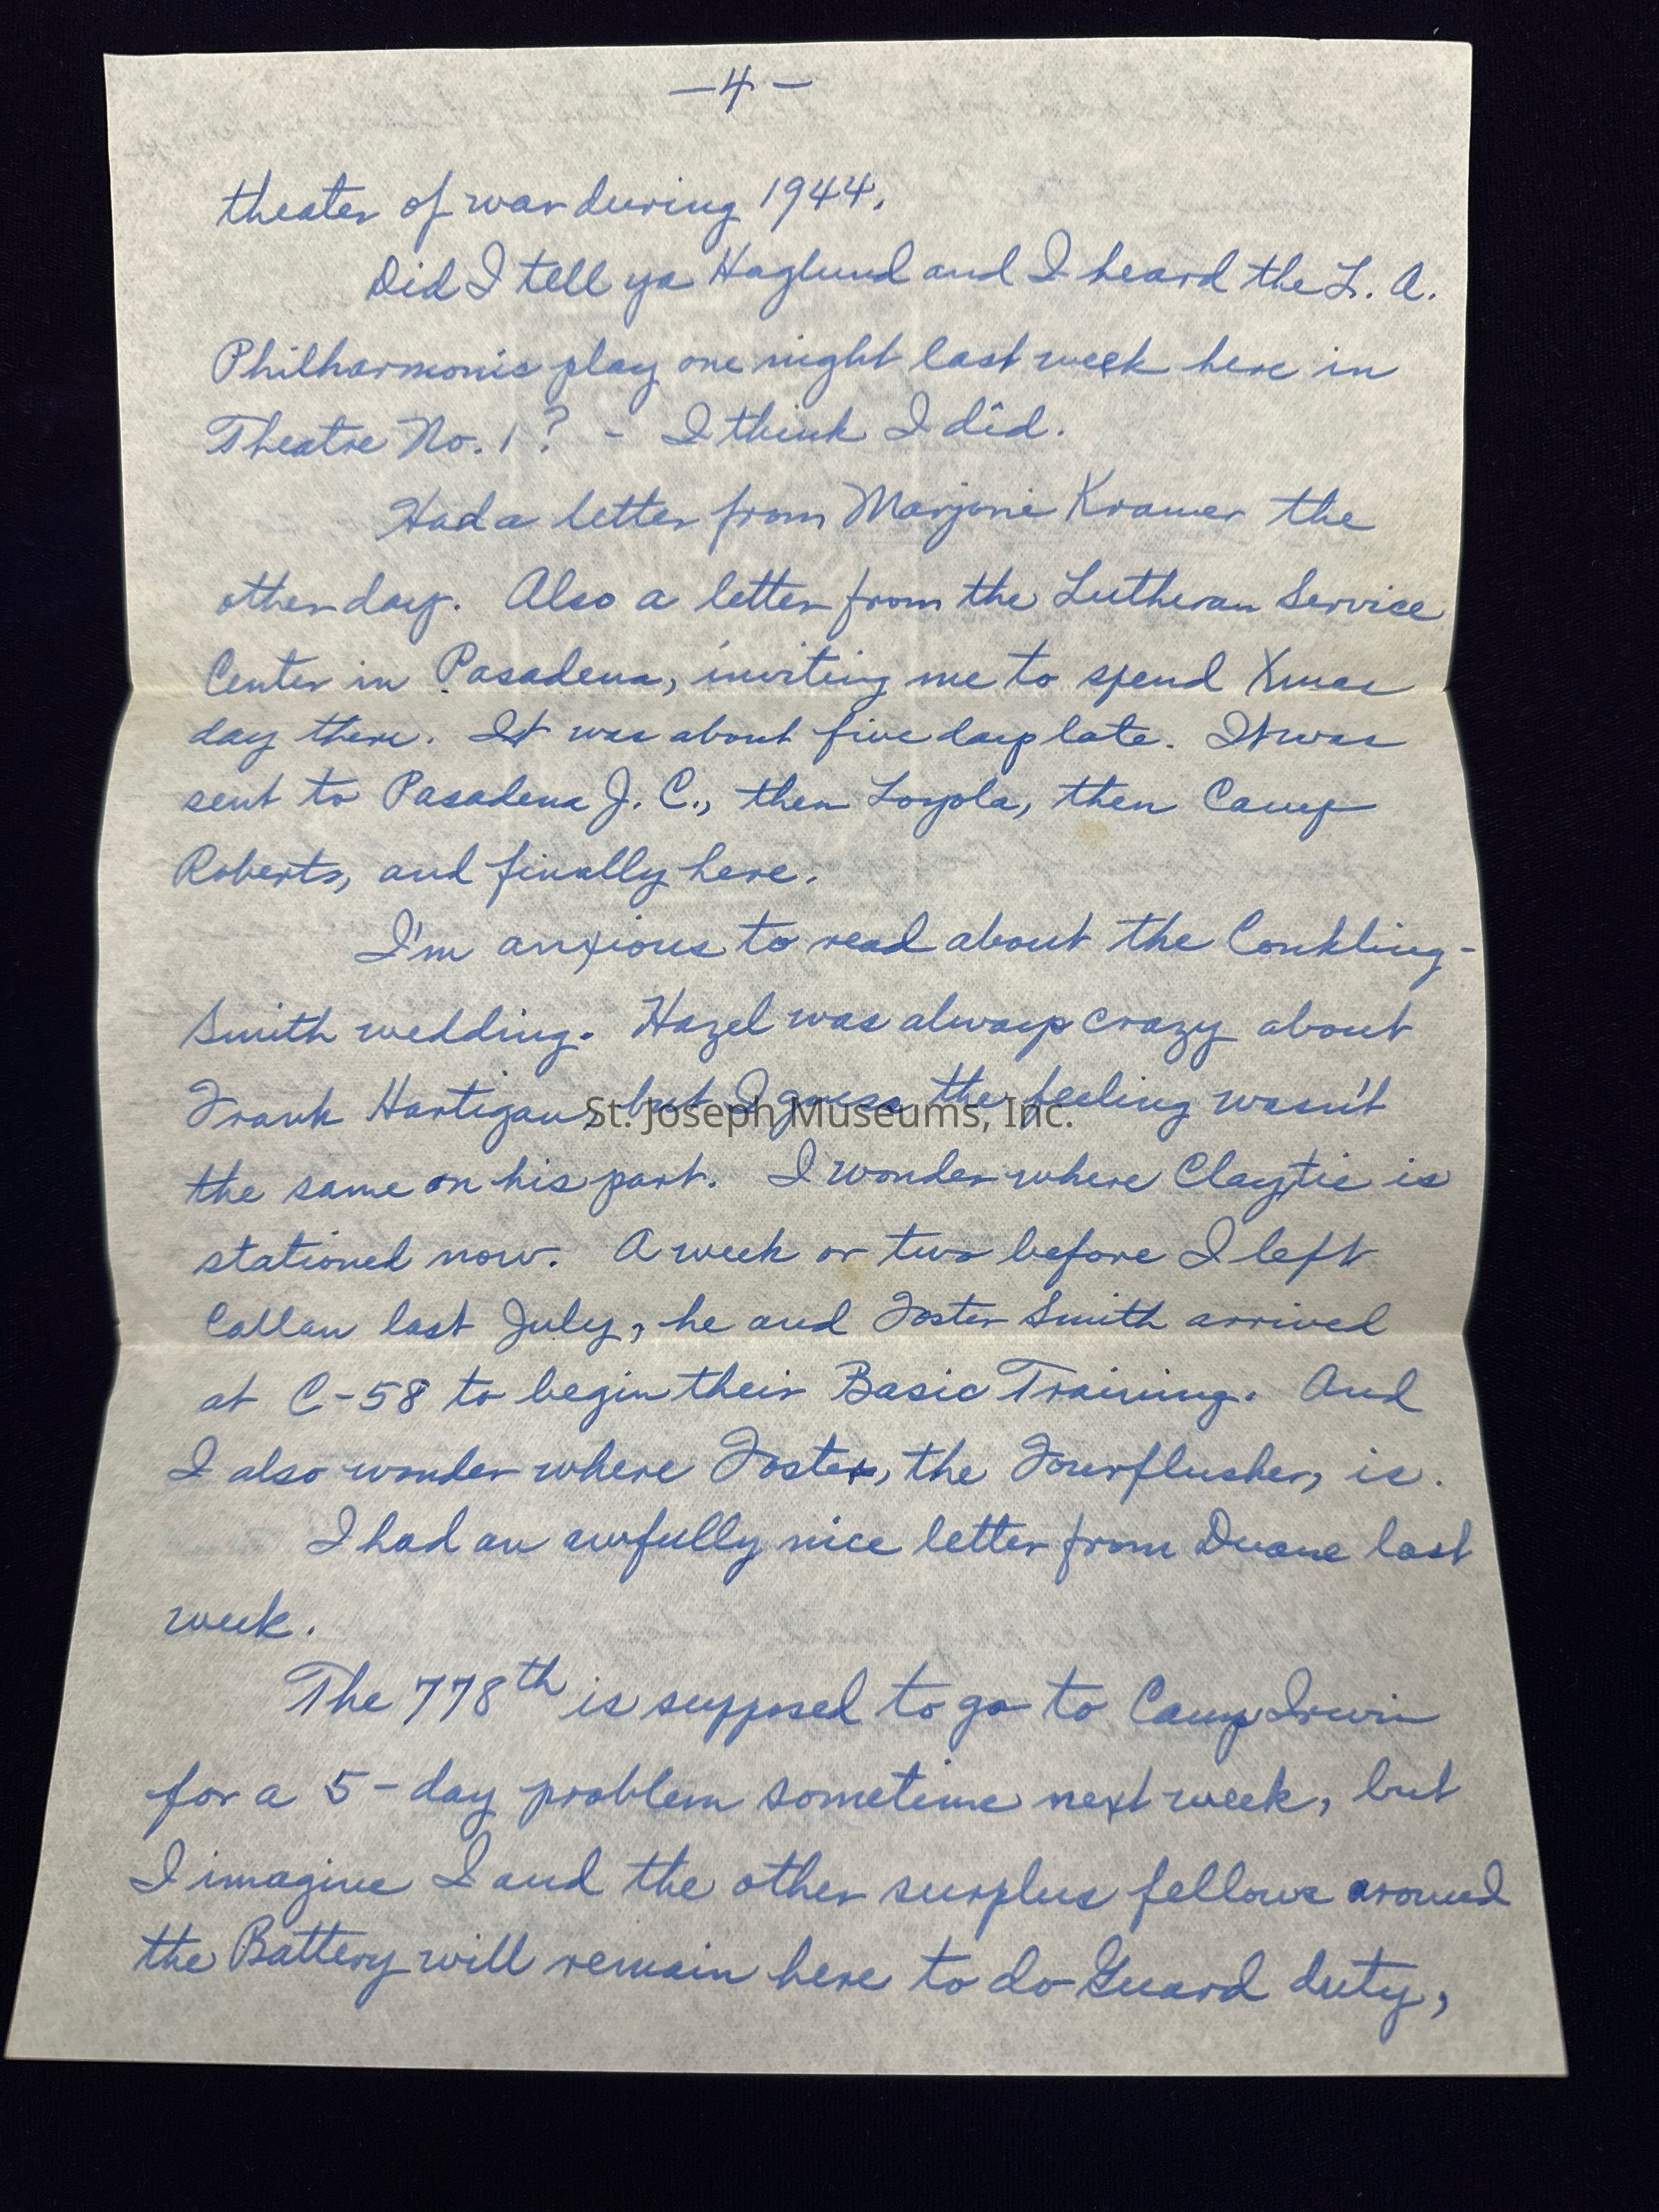 —4—
theater of war during 1944.
Did I tell ya Haglund and I heard the L. A.
Philharmonic play one night last week here in
Theatre No. 1? - I think I did.
Had a letter from Marjorie Kramer the
other day. Also a letter from the Lutheran Service
Center in Pasadena, inviting me to spend Xmas
day there. It was about five days late. It was
sent to Pasadena J. C., then Loyola, then Camp
Roberts, and finally here.
I'm anxious to read about the Conkling-
Smith wedding. Hazel was always crazy about
Frank Hartigan, but I guess the feeling wasn't
St. Joseph Museums, Inc.
the same on his part. I wonder where Claytie is
stationed now. A week or two before I left
Callan last July, he and Foster Smith arrived
at C-58 to begin their Basic Training. And
I also wonder where Foster, the Fourflusher, is.
I had an awfully nice letter from Duane last
week.
The 778th is supposed to go to Camp Irwin
for a 5-day problem sometime next week, but
I imagine I and the other surplus fellows around
the Battery will remain here to do Guard duty,